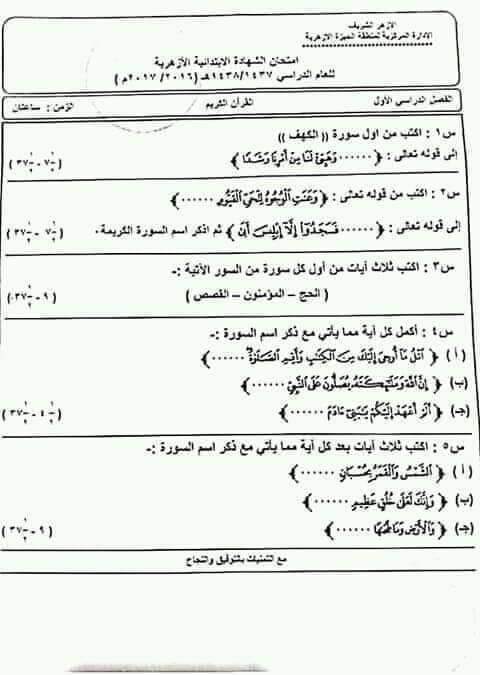 الأزهر الشريف
الإدارة المركزية لمنطقة الجيزة الأزهرية
امتحان الشهادة الابتدائية الأزهرية
للعام الدراسي ١٤٣٨/١٤٣٧هـ (٢٠١٦/ ٢٠١٧م )
الفصل الدراسي الأول القرآن الكريم الزمن : ساعتان
س١ : اكتب من أول سورة (( الكهف ))
إلى قوله تعالى : ﴿ ...... وَهَيِّئْ لَنَا مِنْ أَمْرِنَا رَشَدًا ﴾
س٢ : اكتب من قوله تعالى : ﴿ وَعَنَتِ الْوُجُوهُ لِلْحَيِّ الْقَيُّومِ ...... ﴾
إلى قوله تعالى : ﴿ ...... فَسَجَدُوا إِلَّا إِبْلِيسَ أَبَىٰ ﴾ ثم اذكر اسم السورة الكريمة.
س٣ : اكتب ثلاث آيات من أول كل سورة من السور الآتية :-
( الحج – المؤمنون – القصص )
س٤ : أكمل كل آية مما يأتي مع ذكر اسم السورة :-
( أ ) ﴿ اتْلُ مَا أُوحِيَ إِلَيْكَ مِنَ الْكِتَابِ وَأَقِمِ الصَّلَاةَ ...... ﴾
(ب) ﴿ إِنَّ اللَّهَ وَمَلَائِكَتَهُ يُصَلُّونَ عَلَى النَّبِيِّ ...... ﴾
(جـ) ﴿ أَلَمْ أَعْهَدْ إِلَيْكُمْ يَا بَنِي آدَمَ ...... ﴾
س٥ : اكتب ثلاث آيات بعد كل آية مما يأتي مع ذكر اسم السورة :-
( أ ) ﴿ الشَّمْسُ وَالْقَمَرُ بِحُسْبَانٍ ...... ﴾
(ب) ﴿ وَإِنَّكَ لَعَلَىٰ خُلُقٍ عَظِيمٍ ...... ﴾
(جـ) ﴿ وَالْأَرْضِ وَمَا طَحَاهَا ...... ﴾
مع التمنيات بالتوفيق والنجاح